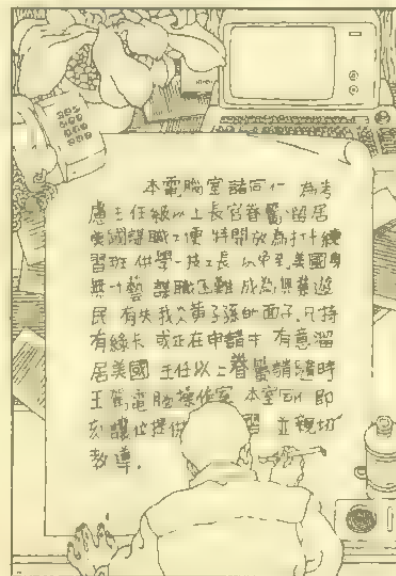 本電腦室諸同仁 為考
慮主任級以上長官眷屬留居
美國謀職之便 特開放為打卡練
習班 供學一技之長 以免至美國身
無一藝 謀職困難 成為無業遊
民 有失我炎黃子孫的面子.凡持
有綠卡 或正在申請中 有意溜
居美國 主任以上眷屬請隨時
王駕電腦操作室 本室同仁 即
刻讓位提供 習 並親切
教導.